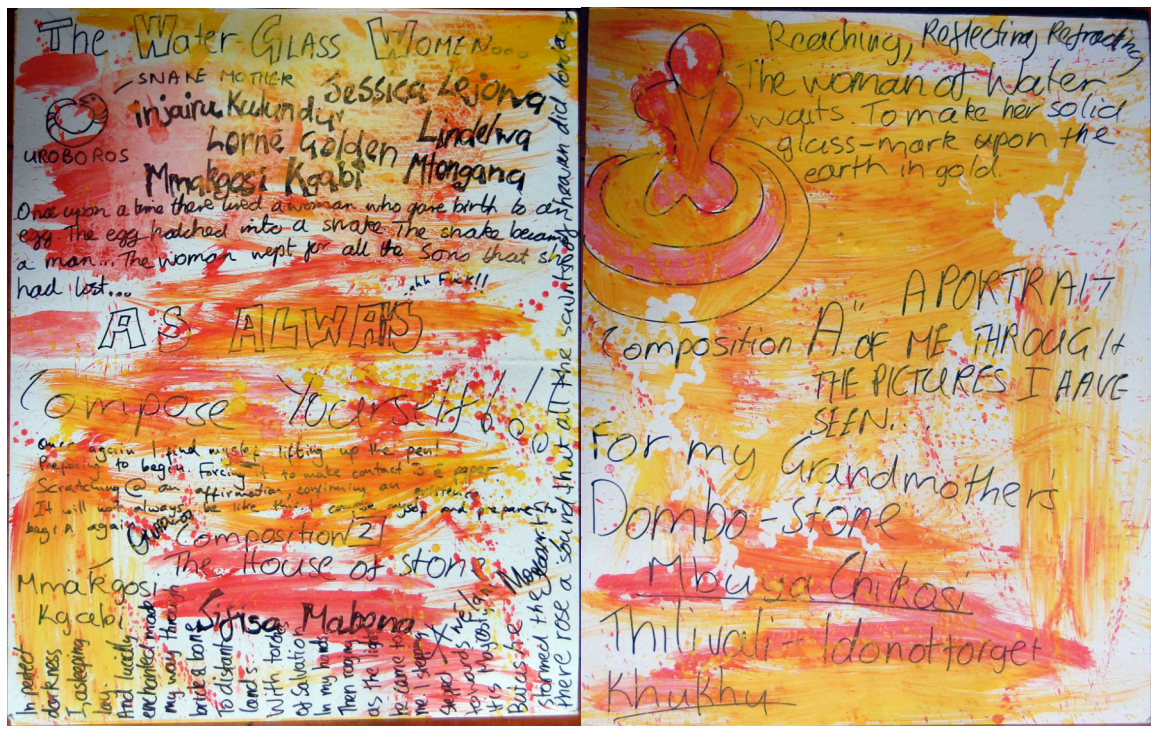 The Water GLASS WOMEN....
SNAKE MOTHER
UROBOROS
injairu Kulundu
Jessica Lejowa
Lorne Golden
Lindelwa
Mmakgosi Kgabi
Mtongana
Once upon a time there lived a woman who gave birth to an
egg. The egg hatched into a snake. The snake became
a man... The woman wept for all the Sons that she
had lost...
..hh Fuck!!
AS ALWAYS
Compose Yourself!..!
Once again I find myself lifting up the pen!
Preparing to begin. Forcing it to make contact paper.
Scratching @ an affirmation, confirming an existence
It will not always be like this. myself and prepare to
begin again
Composition "2"
The House of stone
Mmakgosi
Kgabi
Sifisa Mabona
In perfect
darkness
I, asleeping
lay.
And lucidly
enchanted made
my way through
brick & bone
To distant
lands
With
of Salvation
In my hands
Then
as the light
to me
me, I sleeping
towards
its
But as he
stormed the
there rose a sound that all the saints of heaven did
Reaching, Reflecting, Refracting
The woman of Water
waits. To make her solid
glass-mark upon the
earth in gold.
A PORTRAIT
Composition "A". OF ME THROUGH
THE PICTURES I HAVE
SEEN...
For my Grandmother's
Dombo-Stone
Mbuya Chikasi
Thilivali - Idonotforget
Khukhu